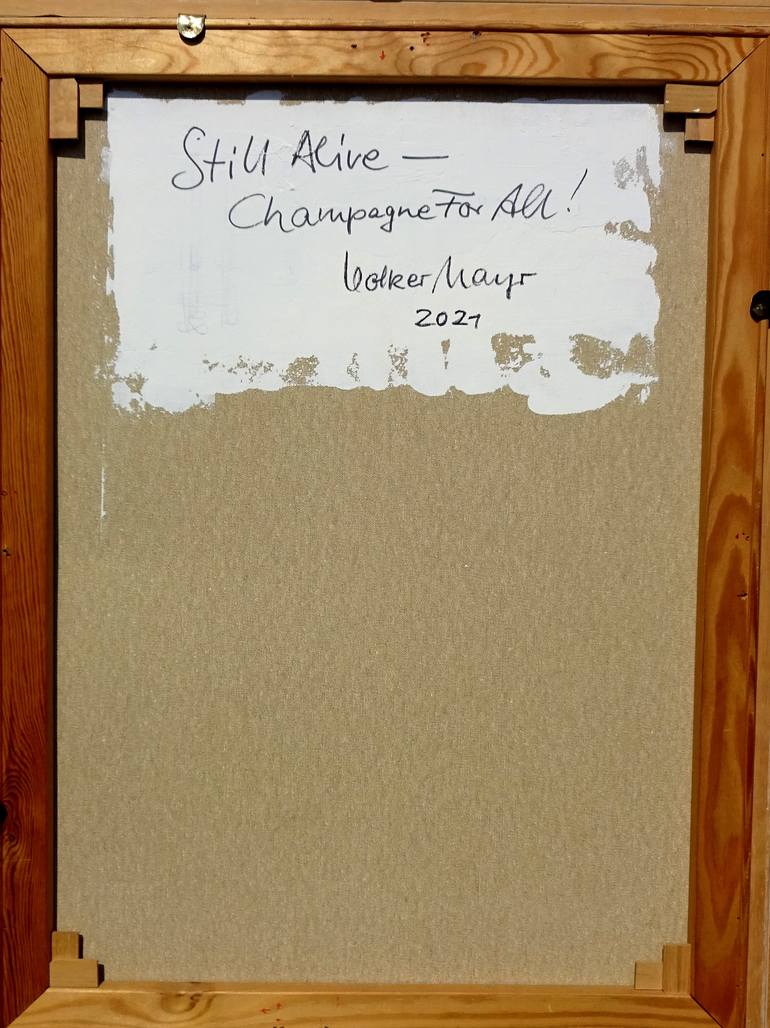 Still Alive —
Champagne For All!
Volker Mayr
2021